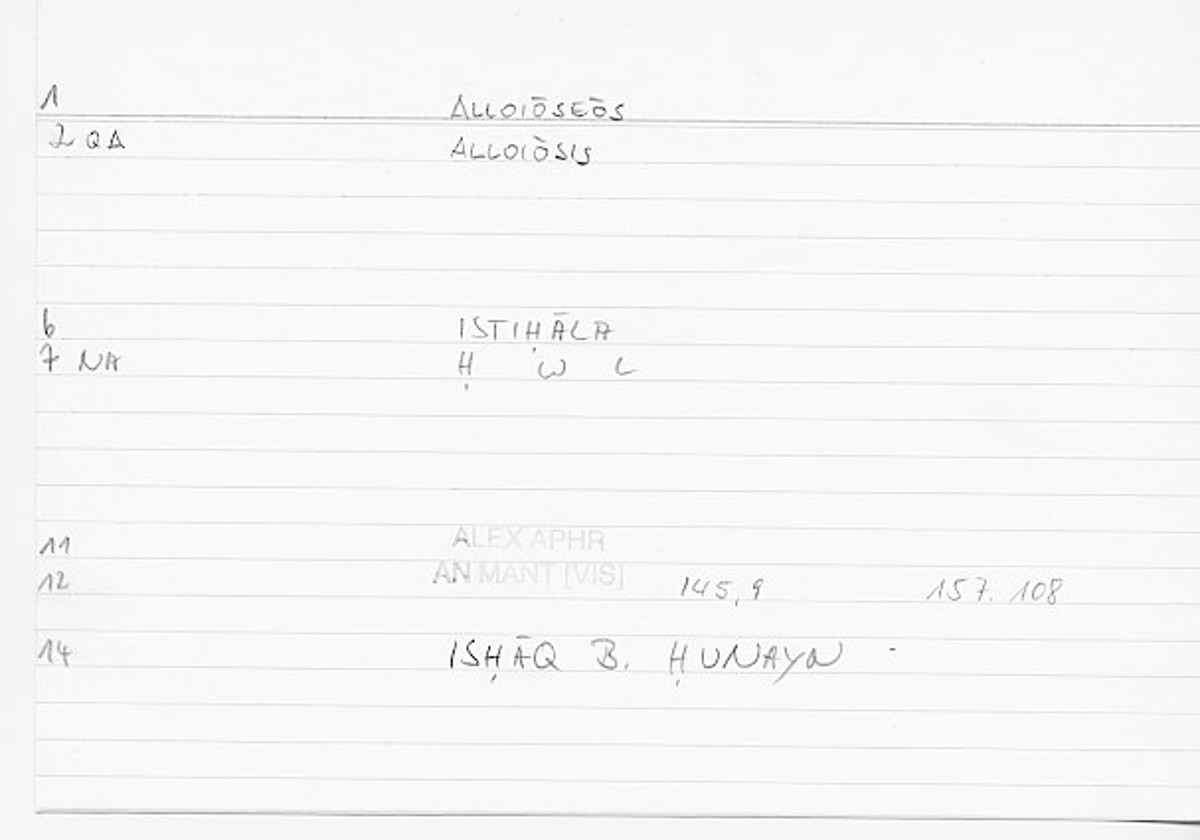 1 ALLOIŌSEŌS
2 QA ALLOIŌSIS
6 ISTIḤĀLA
7 NA Ḥ W L
11 ALEX APHR
12 AN MANT [VIS] 145,9 157.108
14 ISḤĀQ B. ḤUNAYN